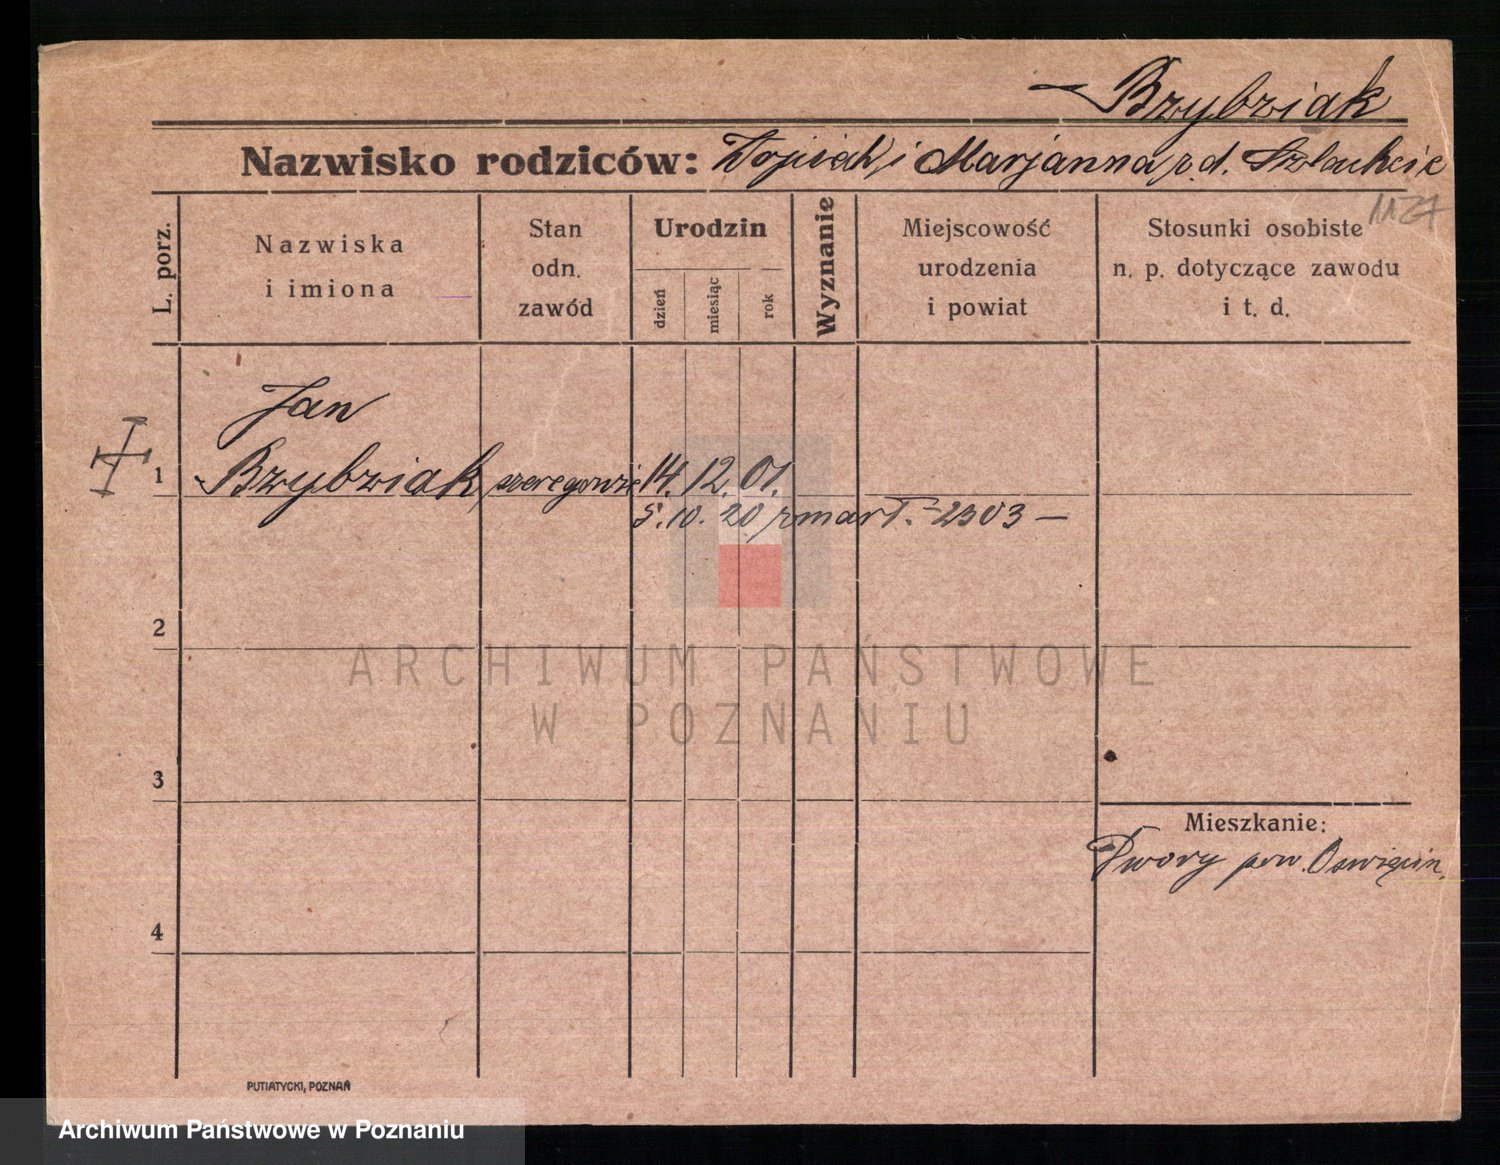 Brzybziak
Nazwisko rodziców: Wojciech i Marjanna z d.
1127
L. porz.
Nazwiska
i imiona
Stan
odn.
zawód
Urodzin
dzień
miesiąc
rok
Wyznanie
Miejscowość
urodzenia
i powiat
Stosunki osobiste
n. p. dotyczące zawodu
i t. d.
Jan
1 Brzybziak szeregowiec 14. 12. 01.
5. 10. 20 zmarł. - 2303 —
2
ARCHIWUM PAŃSTWOWE
W POZNANIU
3
Mieszkanie:
Dwory pow. Oświęcim
4
PUTIATYCKI, POZNAŃ
Archiwum Państwowe w Poznaniu